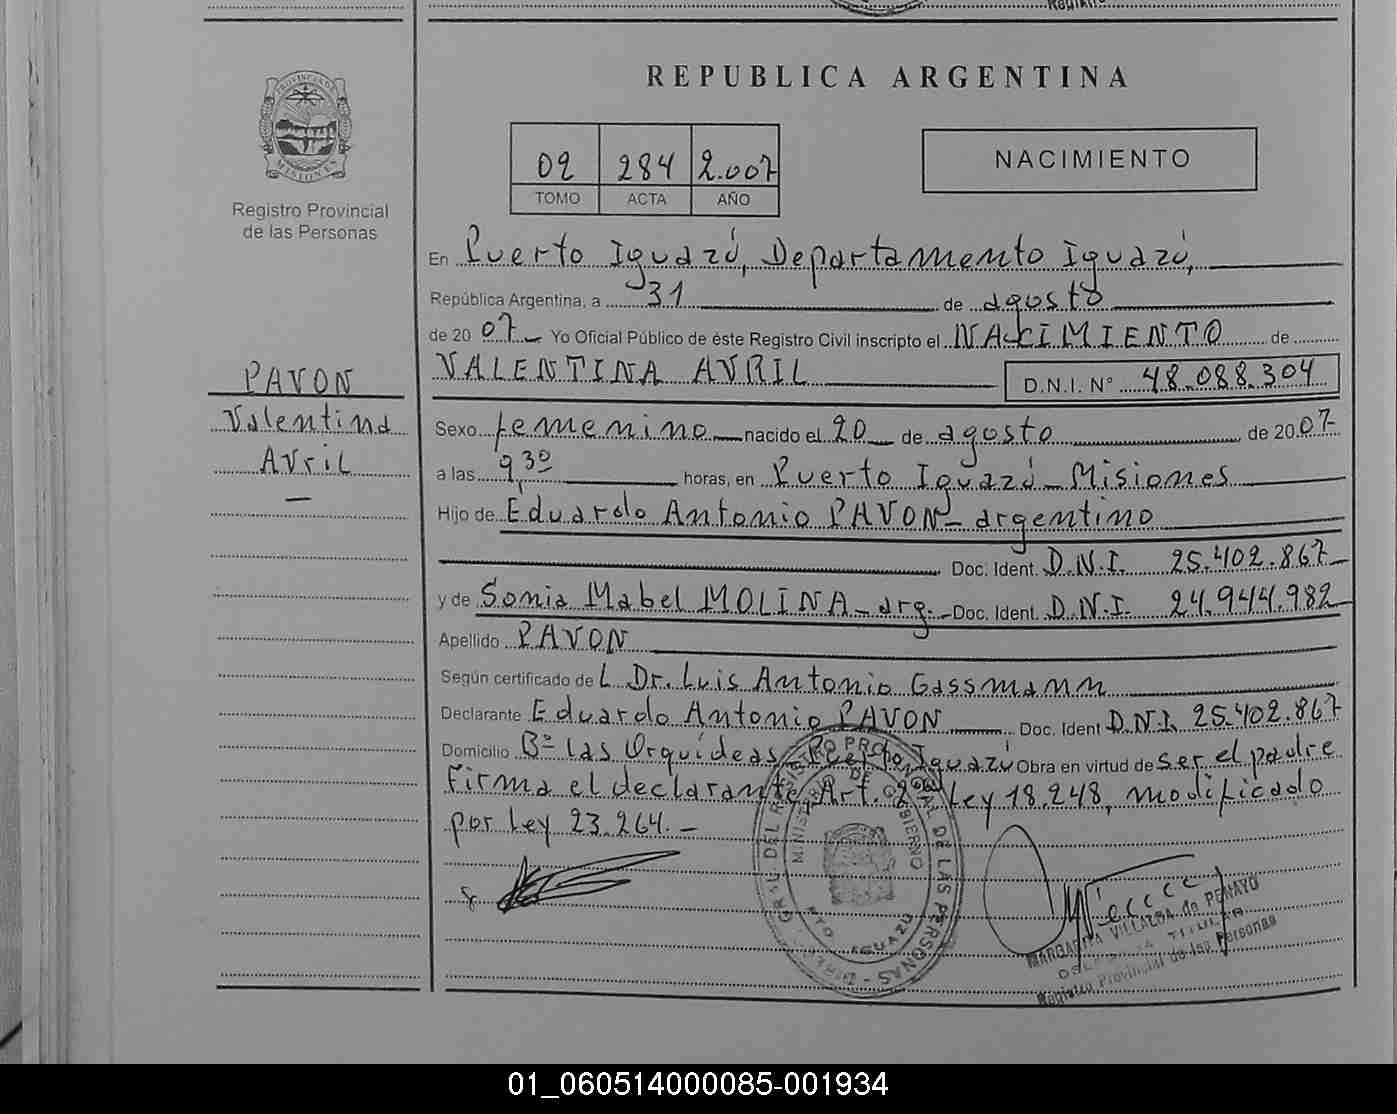 Registro
REPUBLICA ARGENTINA
PROVINCIA DE
MISIONES
Registro Provincial
de las Personas
02 284 2.007
TOMO ACTA AÑO
NACIMIENTO
En Puerto Iguazú, Departamento Iguazú,
República Argentina, a 31 de agosto
de 20 07 Yo Oficial Público de éste Registro Civil inscripto el NACIMIENTO de
VALENTINA AVRIL D.N.I. N° 48.088.304
PAVON
Valentina
Avril
Sexo femenino nacido el 20 de agosto de 20 07
a las 9,30 horas, en Puerto Iguazú - Misiones
Hijo de Eduardo Antonio PAVON - argentino
Doc. Ident. D.N.I. 25.402.867
y de Sonia Mabel MOLINA - arg. - Doc. Ident. D.N.I. 24.944.982
Apellido PAVON
Según certificado de L Dr. Luis Antonio Gassmann
Declarante Eduardo Antonio PAVON Doc. Ident D.N.I. 25.402.867
Domicilio Bº Las Orquídeas - Puerto Iguazú Obra en virtud de ser el padre
Firma el declarante, Art. 2º Ley 18.248, modificado
por Ley 23.264. -
MINISTERIO DE GOBIERNO
PTO IGUAZU
MARGARITA VILLALBA de PENAYO
Registro Provincial de las Personas
01_060514000085-001934